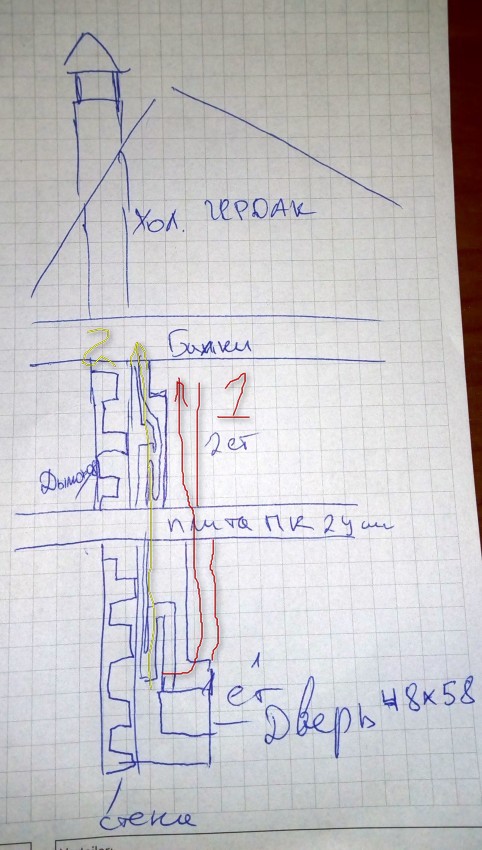 Хол. ЧЕРДАК
2
Балки
1
2 ст
Дымоход
плита ПК 24 см
1
ст
Дверь 48х58
стена